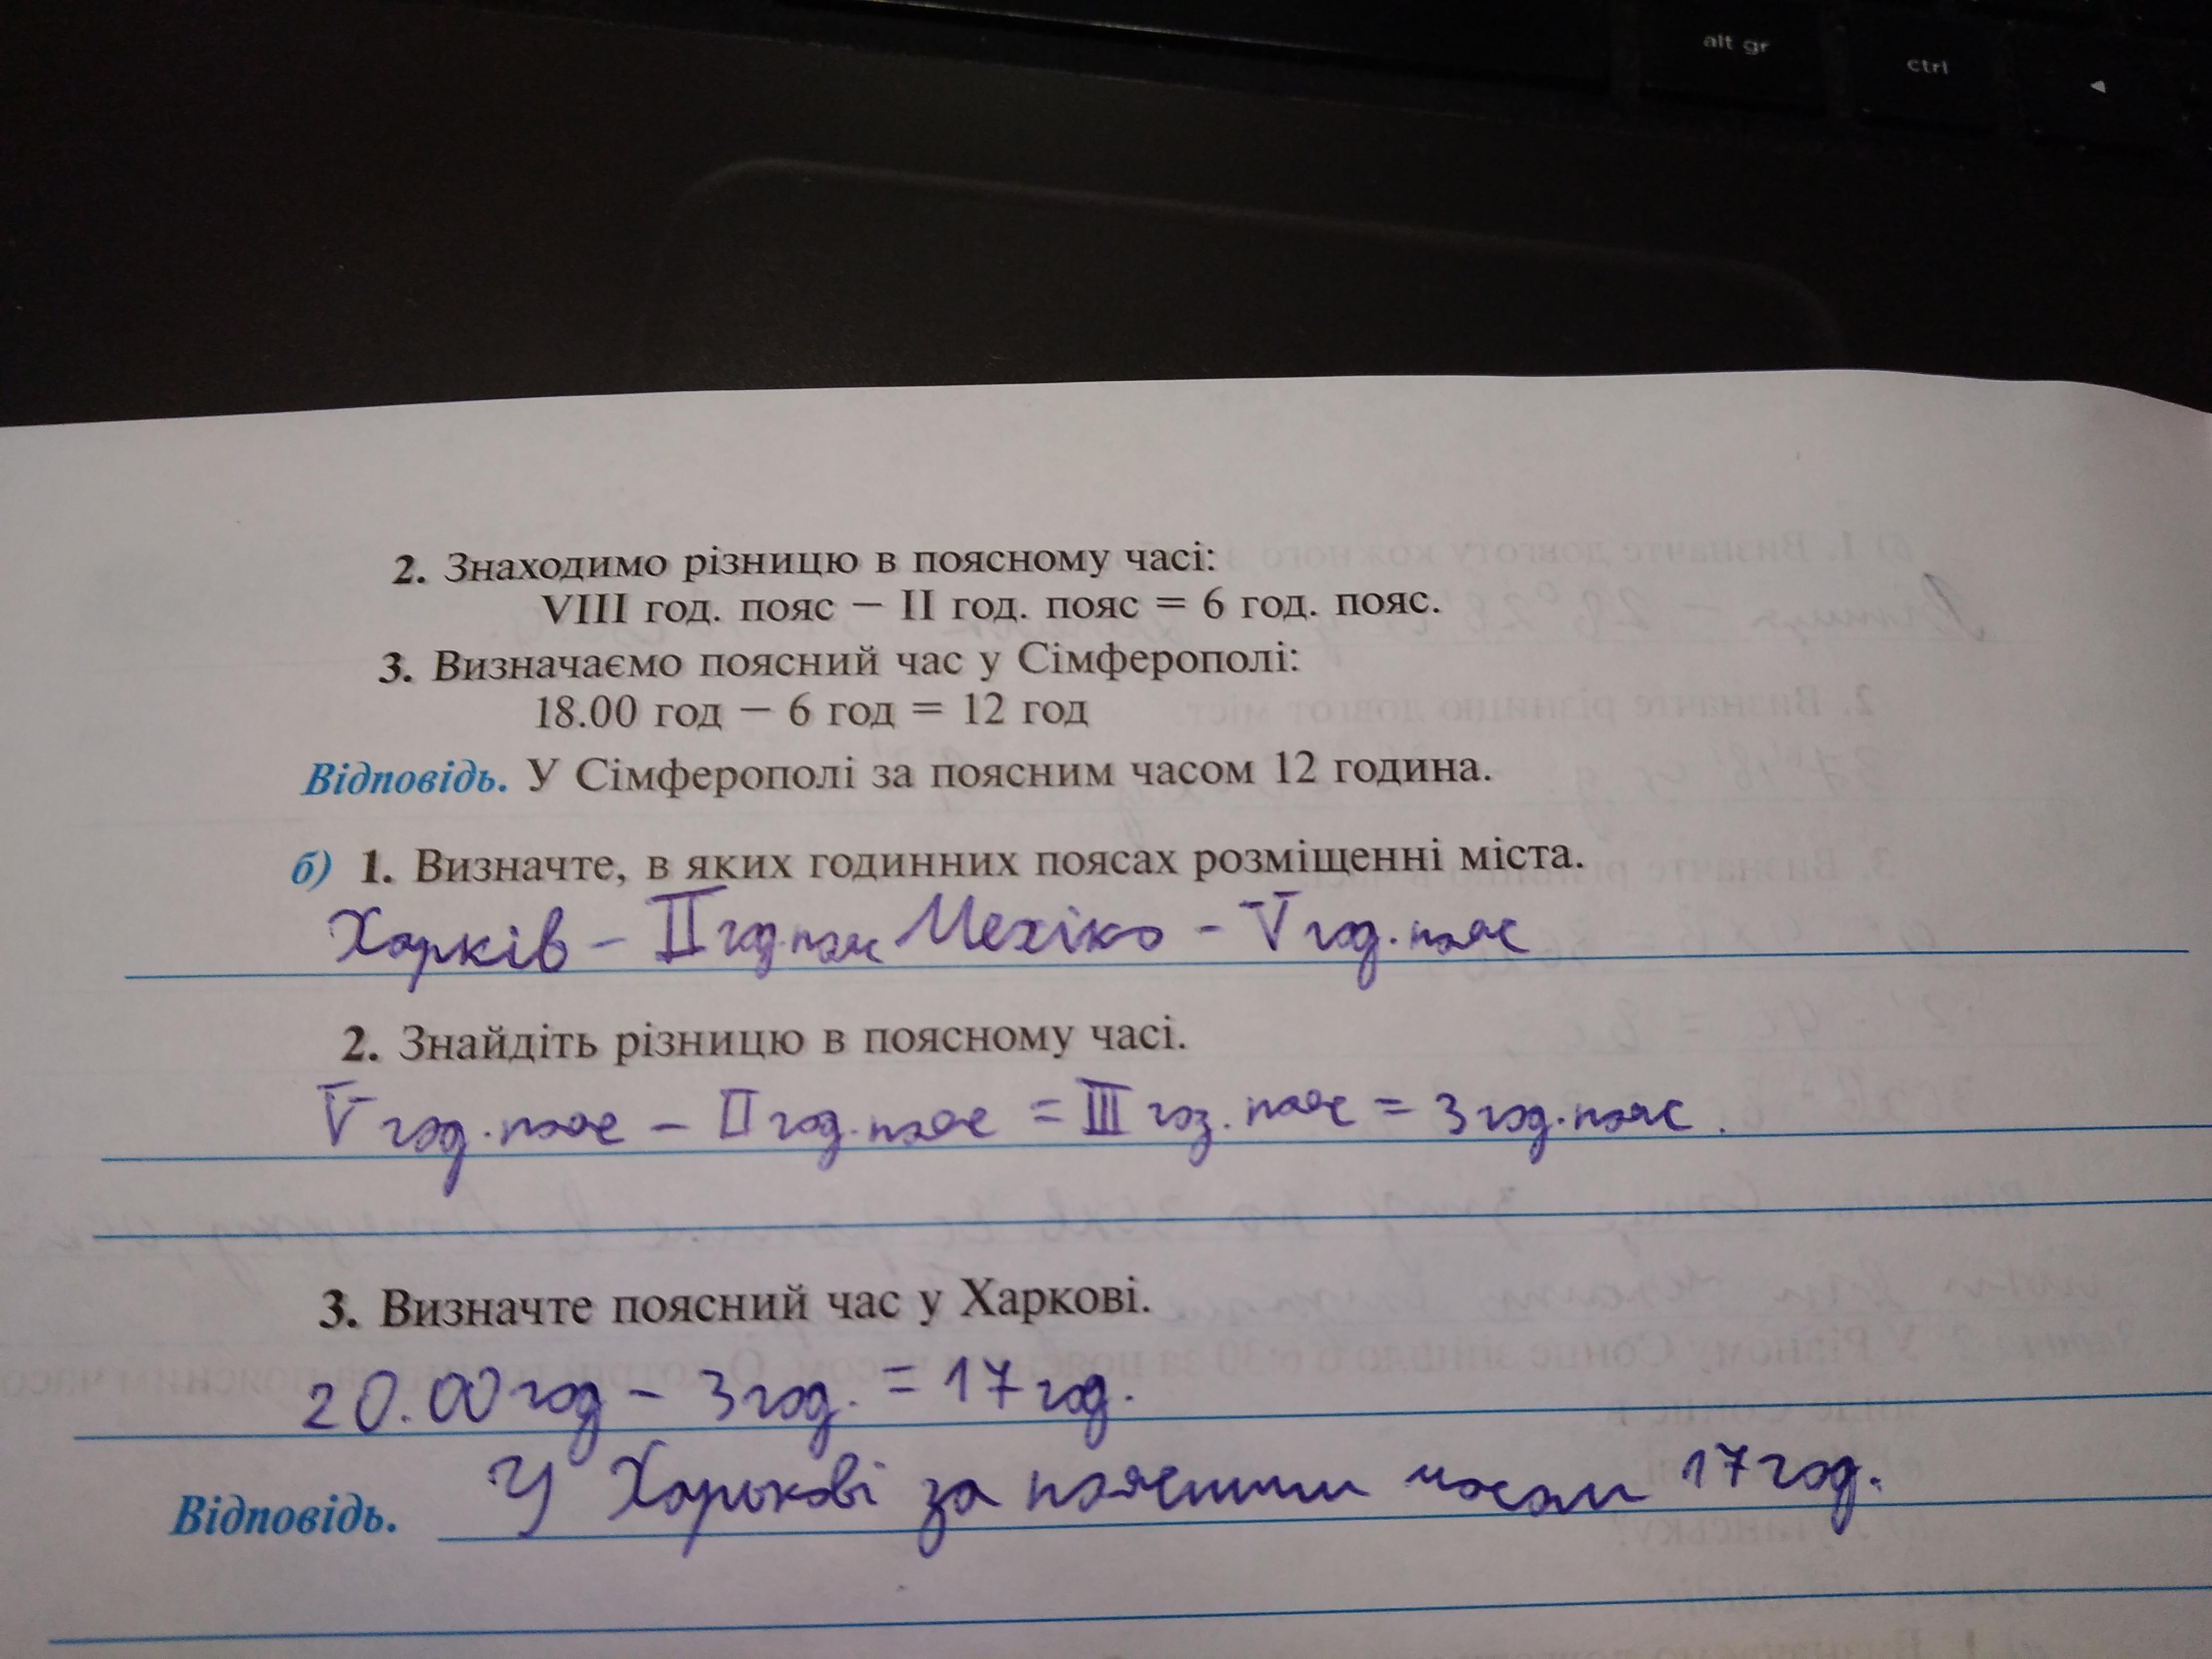 alt gr
ctrl
2. Знаходимо різницю в поясному часі:
VIII год. пояс − II год. пояс = 6 год. пояс.
3. Визначаємо поясний час у Сімферополі:
18.00 год − 6 год = 12 год
Відповідь. У Сімферополі за поясним часом 12 година.
б) 1. Визначте, в яких годинних поясах розміщенні міста.
Харків – II год.пояс Мехіко - V год.пояс
2. Знайдіть різницю в поясному часі.
V год.пояс – II год.пояс = III год.пояс = 3 год.пояс.
3. Визначте поясний час у Харкові.
20.00 год – 3 год. = 17 год.
Відповідь. У Харькові за поясним часом 17 год.